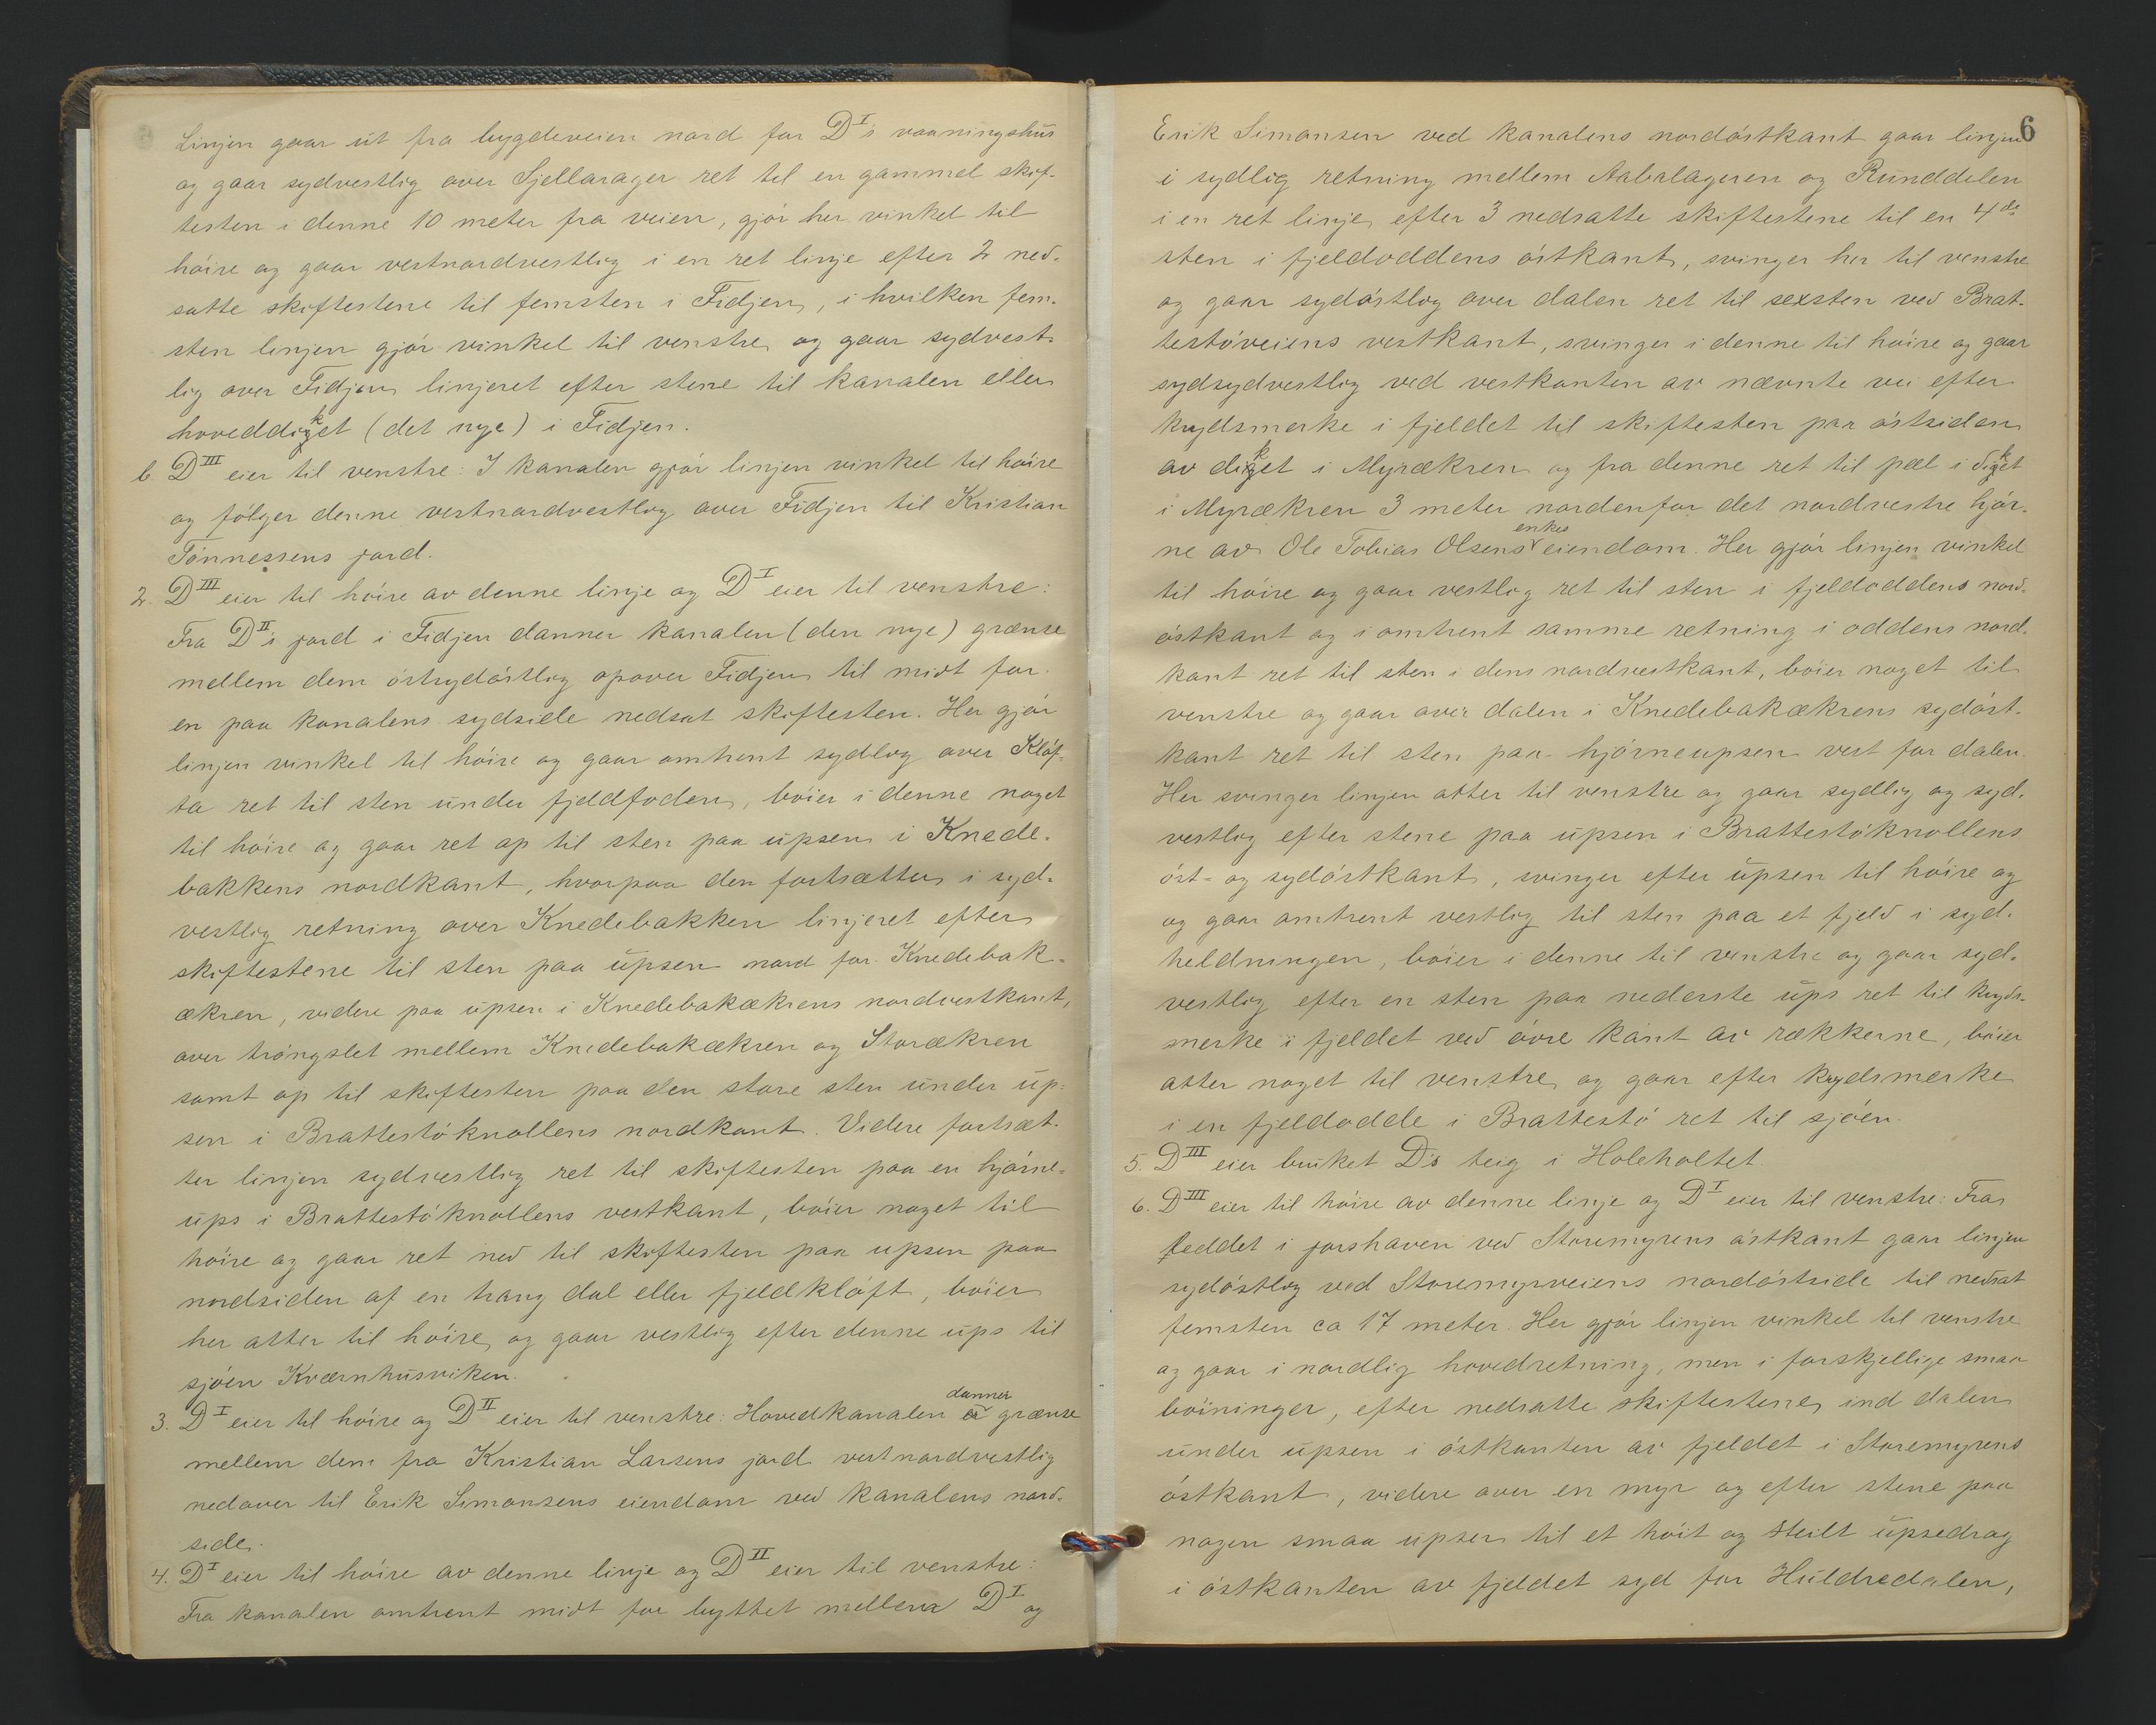 Linjen gaar ut fra bygdeveien nord for D^I's vaaningshus
og gaar sydvestlig over Sjellarager ret til en gammel skif-
testen i denne 10 meter fra veien, gjör her vinkel til
höire og gaar vestnordvestlig i en ret linje efter 2 ned-
satte skiftestene til femsten i Fidjen, i hvilken fem-
sten linjen gjör vinkel til venstre og gaar sydvest-
lig over Fidjen linjeret efter stene til kanalen eller
hoveddiket (det nye) i Fidjen.
b. D^III eier til venstre: I kanalen gjör linjen vinkel til höire
og fölger denne vestnordvestlig over Fidjen til Kristian
Tönnessens jord.
2. D^III eier til höire av denne linje og D^I eier til venstre:
Fra D^II's jord i Fidjen danner kanalen (den nye) grænse
mellem dem östsydöstlig opover Fidjen til midt for
en paa kanalens sydside nedsat skiftesten. Her gjör
linjen vinkel til höire og gaar omtrent sydlig over Klöf-
ta ret til sten under fjeldfoden, böier i denne noget
til höire og gaar ret op til sten paa upsen i Knede-
bakkens nordkant, hvorpaa den fortsætter i syd-
vestlig retning over Knedebakken linjeret efter
skiftestene til sten paa upsen nord for Knedebak-
ækren, videre paa upsen i Knedebakækrens nordvestkant,
over tröngslet mellem Knedebakækren og Storækren
samt op til skiftesten paa den store sten under up-
sen i Brattestöknollens nordkant. Videre fortsæt-
ter linjen sydvestlig ret til skiftesten paa en hjörne-
ups i Brattestöknollens vestkant, böier noget til
höire og gaar ret ned til skiftesten paa upsen paa
nordsiden af en trang dal eller fjeldklöft, böier
her atter til höire og gaar vestlig efter denne ups til
sjöen Kværnhusviken.
3. D^I eier til höire og D^II eier til venstre: Hovedkanalen er danner grænse
mellem dem fra Kristian Larsens jord vestnordvestlig
nedover til Erik Simonsens eiendom ved kanalens nord-
side.
4. D^I eier til höire av denne linje og D^II eier til venstre:
Fra kanalen omtrent midt for byttet mellem D^I og
6
Erik Simonsen ved kanalens nordöstkant gaar linjen
i sydlig retning mellem Aabalageren og Runddelen
i en ret linje efter 3 nedsatte skiftestene til en 4de
sten i fjeldoddens östkant, svinger her til venstre
og gaar sydöstlog over dalen ret til sexsten ved Brat-
testöveiens vestkant, svinger i denne til höire og gaar
sydsydvestlig ved vestkanten av nævnte vei efter
krydsmerke i fjeldet til skiftesten paa östsiden
av diket i Myrækren og fra denne ret til pæl i diket
i Myrækren 3 meter nordenfor det nordvestre hjör-
ne av Ole Tobias Olsens enkes eiendom. Her gjör linjen vinkel
til höire og gaar vestlig ret til sten i fjeldoddens nord-
östkant og i omtrent samme retning i oddens nord-
kant ret til sten i dens nordvestkant, böier noget til
venstre og gaar over dalen i Knedebakækrens sydöst-
kant ret til sten paa hjörneupsen vest for dalen.
Her svinger linjen atter til venstre og gaar sydlig og syd-
vestlig efter stene paa upsen i Brattestöknollens
öst- og sydöstkant, svinger efter upsen til höire og
og gaar omtrent vestlig til sten paa et fjeld i syd-
heldningen, böier i denne til venstre og gaar syd-
vestlig efter en sten paa nederste ups ret til kryds-
merke i fjeldet ved övre kant av rækkerne, böier
atter noget til venstre og gaar efter krydsmerke
i en fjeldodde i Brattestö ret til sjöen.
5. D^III eier bruket D's teig i Holeholtet.
6. D^III eier til höire av denne linje og D^I eier til venstre: Fra
leddet i jorshaven ved Storemyrens östkant gaar linjen
sydöstlig ved Storemyrveiens nordöstside til nedsat
femsten ca 17 meter. Her gjör linjen vinkel til venstre
og gaar i nordlig hovedretning, men i forskjellige smaa
böininger, efter nedsatte skiftestene ind dalen
under upsen i östkanten av fjeldet i Storemyrens
östkant, videre over en myr og efter stene paa
nogen smaa upser til et höit og steilt upsedrag
i östkanten av fjeldet syd for Huldredalen,